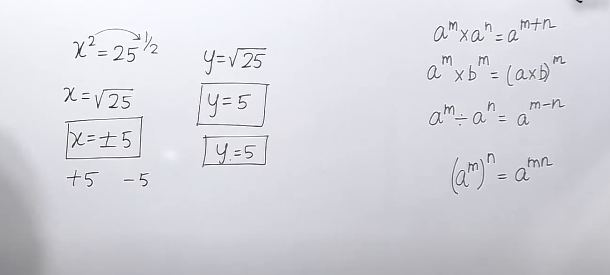 x² = 25^1/2
x = √25
x = ± 5
+5 -5
y = √25
y = 5
y = 5
a^m × a^n = a^m+n
a^m × b^m = (a×b)^m
a^m ÷ a^n = a^m-n
(a^m)^n = a^mn